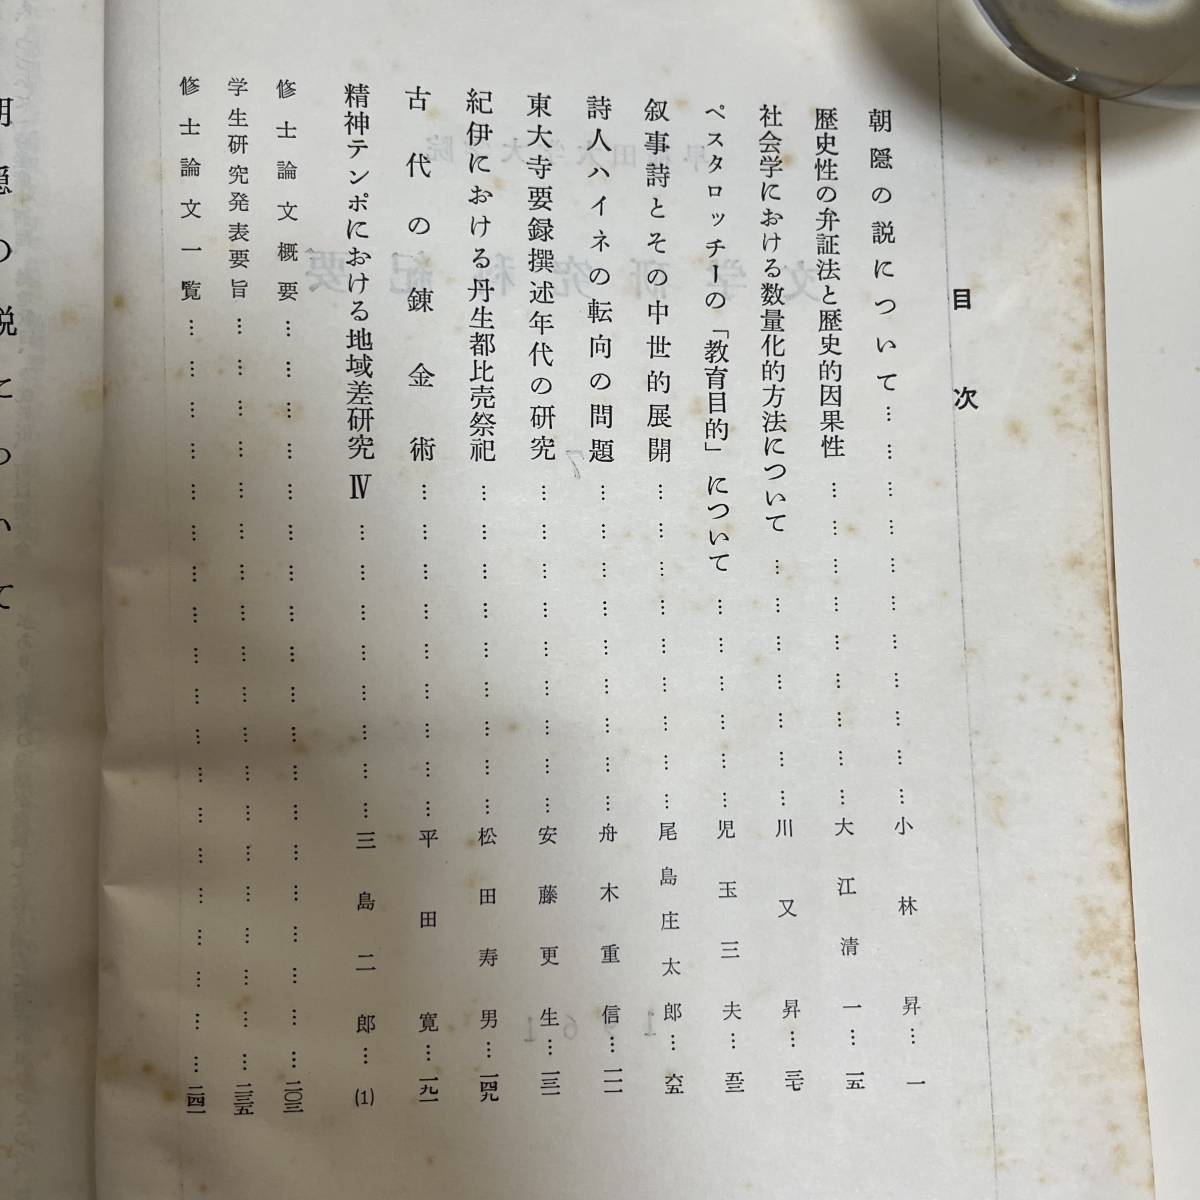 目次
朝隠の説について……………………………小林昇…一
歴史性の弁証法と歴史的因果性……………………大江清一…一五
社会学における数量化的方法について………………川又昇…三七
ペスタロッチーの「教育目的」について………………児玉三夫…五三
叙事詩とその中世的展開………………………尾島庄太郎…六五
詩人ハイネの転向の問題………………………舟木重信…一一一
東大寺要録撰述年代の研究………………………安藤更生…一三一
紀伊における丹生都比売祭祀………………………松田寿男…一四九
古代の錬金術………………………平田寛…一九一
精神テンポにおける地域差研究 Ⅳ……………………三島二郎…(1)
修士論文概要……………………………………二〇三
学生研究発表要旨……………………………………二三五
修士論文一覧……………………………………二四一
朝隠の説について
早稲田大学大学院
文学研究科紀要
7
1961